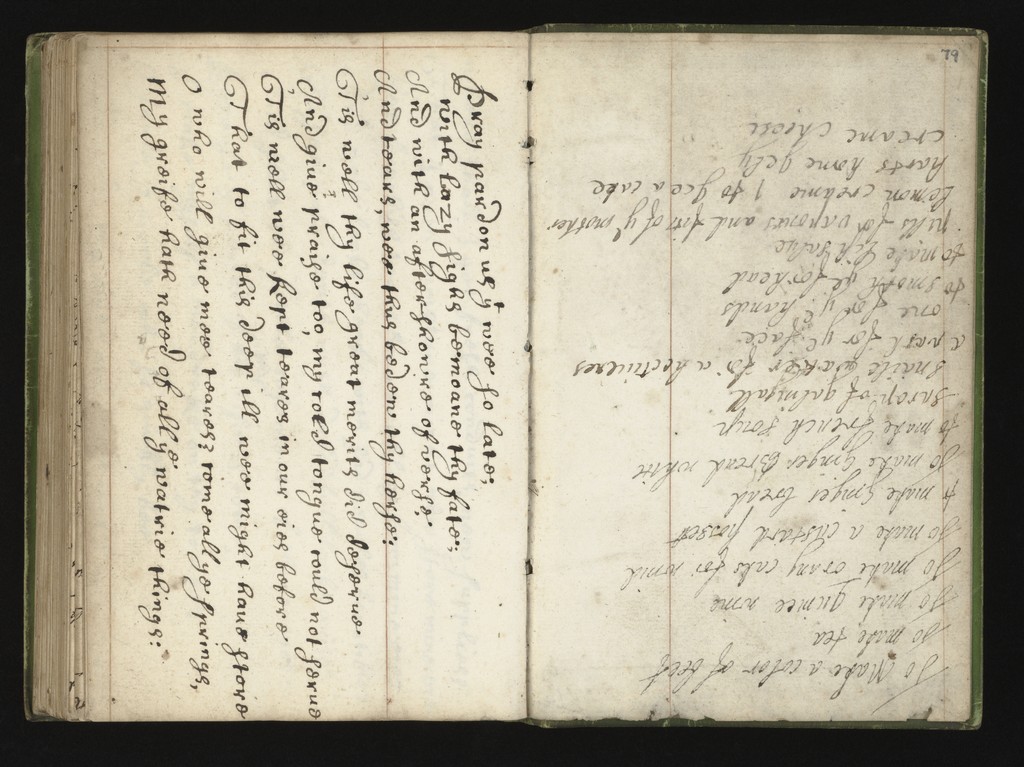 Pray pardon us yt wee so late,
with lazy sighs bemoane thy fate;
And with an aftershowre of verse,
And teares, wee thus bedew thy herse:
Tis well thy life great merits did deserue
And giue praise too, my cold tongue could not serue
Tis well wee kept teares in our eies before
That to fit this deep ill wee might haue store
O who will giue mee teares? come all ye springs,
My greife hath need of all ye watrie things:
79
To Make a color of beef
To make tea
To make quince wine
To make orang caks for wind
To make a custard posset
to make ginger bread
To make Ginger Bread white
to make french soup
sarop of galingall
snaile watter for a
a wash for ye face
one for ye hands
to smoth ye forhead
to make Lipsalve
pills for vapours and fits of ye mother
Lemon creame / to yce a cake
harts horne gely
creame cheese